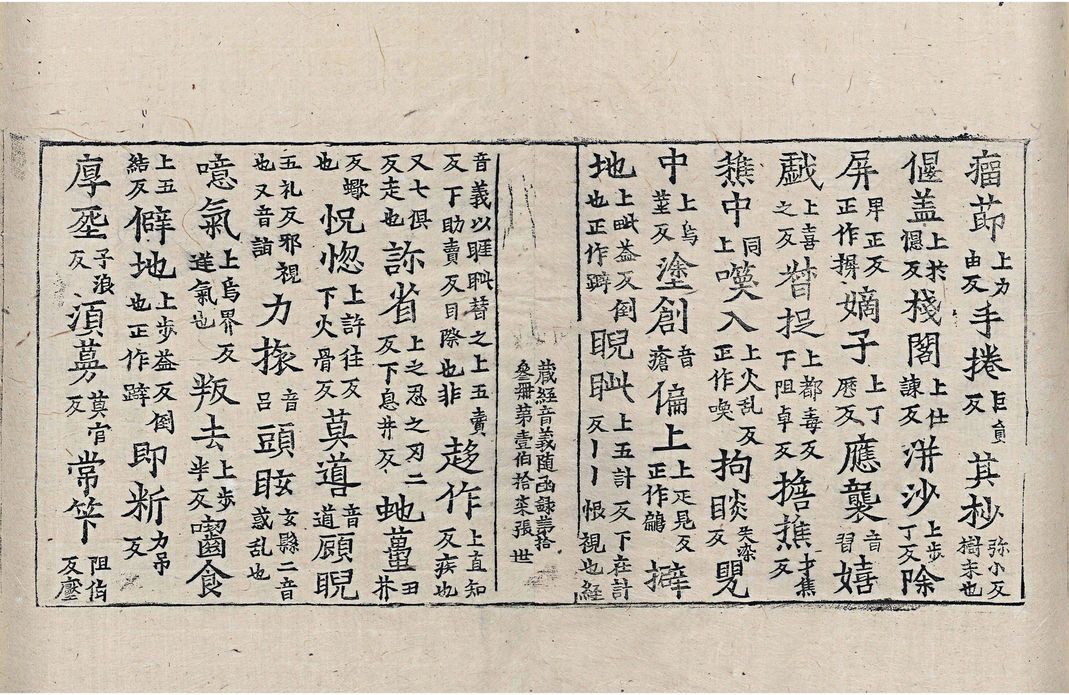 瘤莭上力由反手捲巨貟反其杪弥小反樹末也
偃盖上於憶反棧閣上仕諫反洴沙上步丁反除
屏卑正反正作摒嫡子上丁歷反應襲音習嬉
戱上喜之反㫺捉上都毒反下阻卓反擔樵才焦反
蕉中上同𠸪入上火乱反正作喚拘睒失染反䀏
中上烏莖反塗創音瘡偏上上疋見反正作鶣擗
地上毗益反倒也正作躃睨眦上五計反下在計反丨丨恨視也経
藏經音義隨函録苐拾
叄冊第壹伯拾柒張 世
音義以睚䀎替之上五賣反下助賣反目際也非趍作上直知反疾也
又七俱反走也詠省上之忍之刃二反下息井反虵蠆丑芥
反蠍也怳惚上許往反下火骨反莫噵音道顧睨
五礼反邪視也又音詣力振音吕頭眩玄縣二音惑乱也
噫氣上烏界反逆氣也叛去上步半反囓食
上五結反僻地上步益反倒也正作躃即斵力吊反
厚埊子浪反湏蔓莫官反常笮阻伯反壓